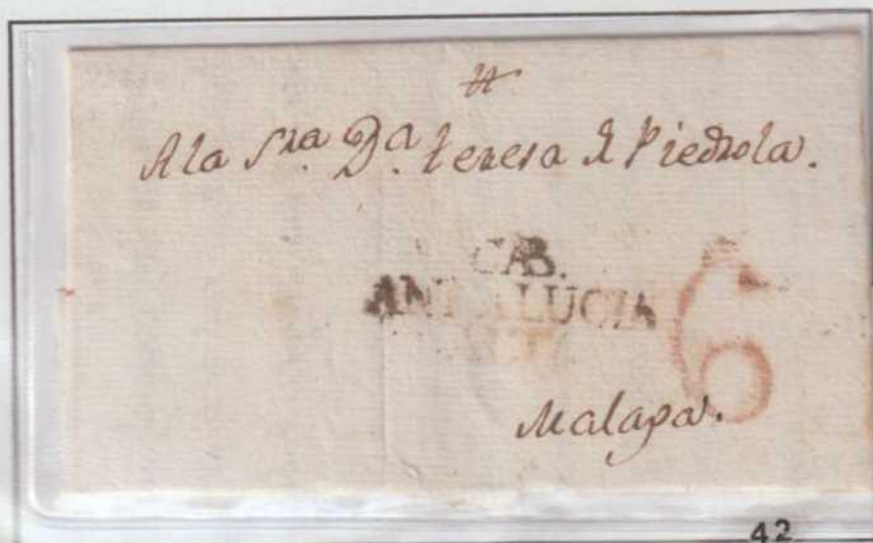 A la Sra. Da. teresa de Piedrola.
CAB.
ANDALUCIA
6
Malaga.
42